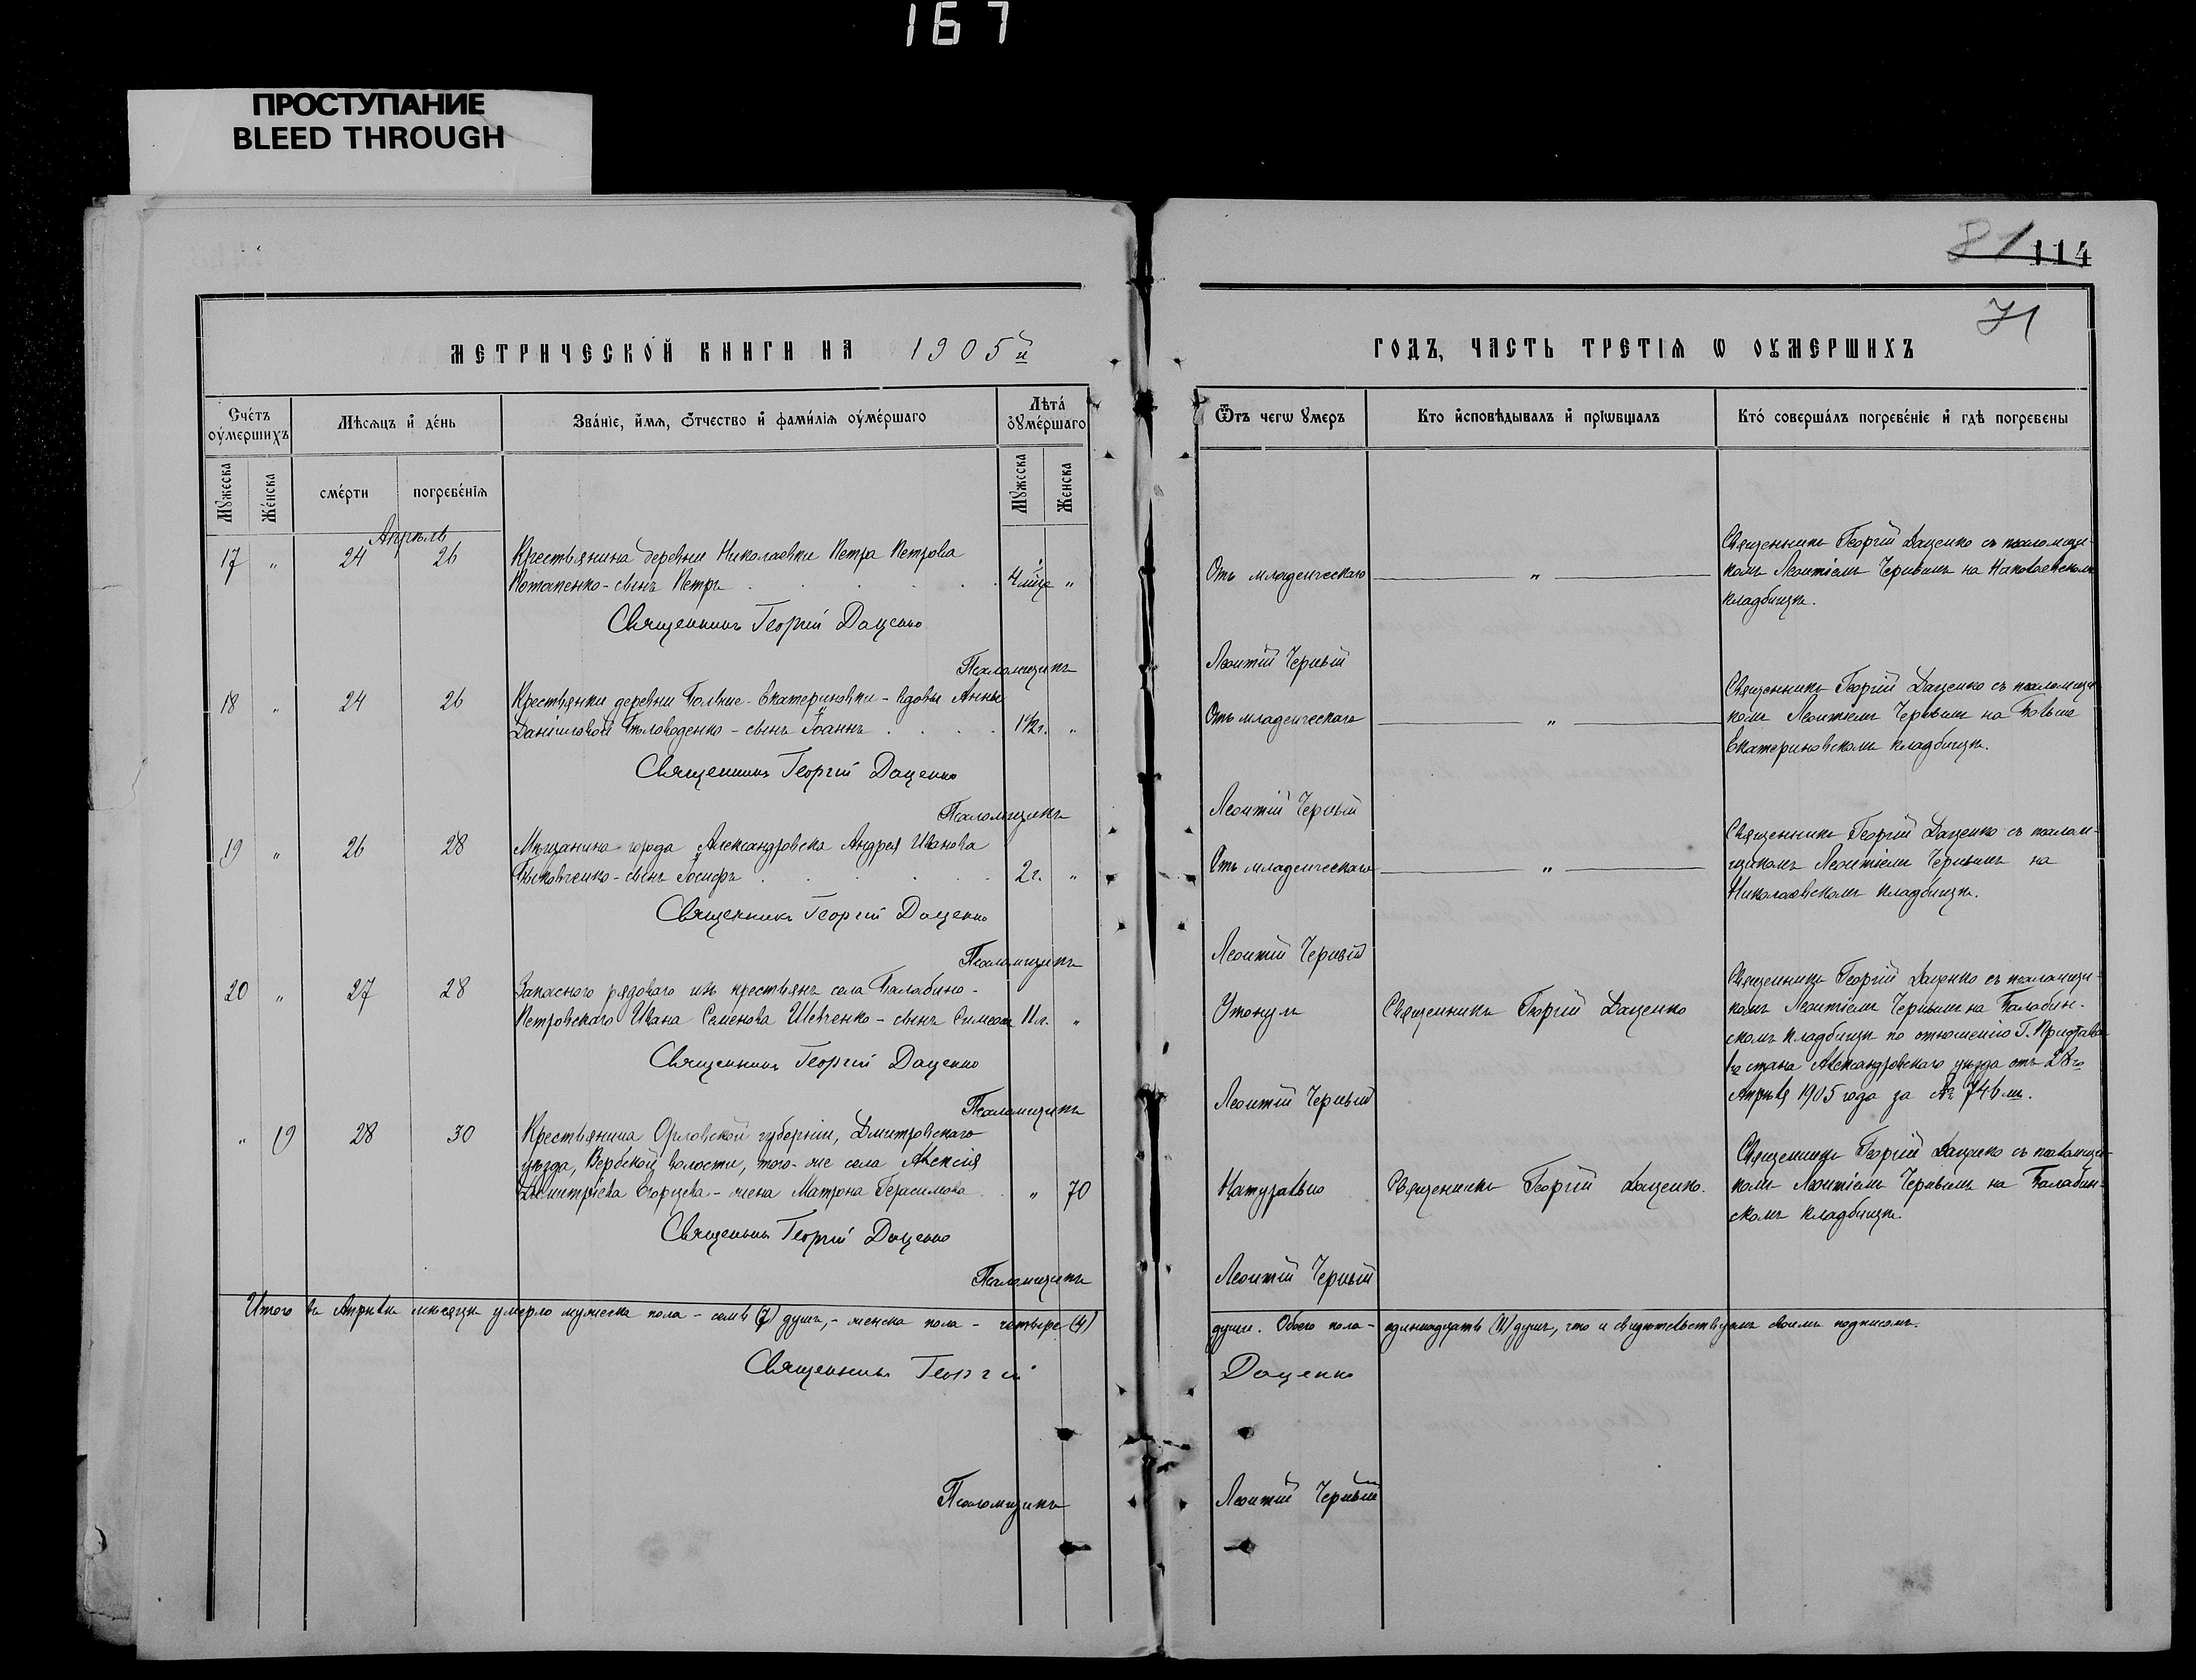 167
ПРОСТУПАНИЕ
BLEED THROUGH
81 114
71
МЕТРИЧЕСКОЙ КНИГИ НА 1905й
ГОДЪ, ЧАСТЬ ТРЕТІѦ Ѡ ОУМЕРШИХЪ
Счéтъ оу҆мéршихъ
Мѣсѧцъ и҆ дéнь
Звáніе, и҆́мѧ, ѻ҆́тчество и҆ фамѝлїѧ оу҆мéршаго
Лѣтá оу҆мéршаго
Ѿтъ чегѡ ᲂумеръ
Кто и҆сповѣдывалъ и҆ прїѡбщалъ
Ктó совершáлъ погребéнїе и҆ гдѣ погребены
Мꙋжеска
Жéнска
смéрти
погребéнїѧ
Мꙋжеска
Женска
Апрѣль
17 " 24 26 Крестьянина деревни Николаевки Петра Петрова
Потапенко - сынъ Петръ . . . . . 4 мѣс "
Отъ младенческаго "
Священникъ Георгій Даценко съ псаломщи-
комъ Леонтіемъ Чернымъ на Николаевскомъ
кладбищѣ.
Священникъ Георгій Даценко
Псаломщикъ Леонтій Черный
18 " 24 26 Крестьянки деревни Больше-Екатериновки - вдовы Анны
Даніиловой - сынъ Іоаннъ . . . . 1½ г. "
Отъ младенческаго "
Священникъ Георгій Даценко съ псаломщи
комъ Леонтіемъ Чернымъ на Больше
Екатериновскомъ кладбищѣ.
Священникъ Георгій Даценко
Псаломщикъ Леонтій Черный
19 " 26 28 Мѣщанина города Александровска Андрея Иванова
- сынъ Іосифъ . . . . . 2 г. "
Отъ младенческаго "
Священникъ Георгій Даценко съ псалом-
щикомъ Леонтіемъ Чернымъ на
Николаевскомъ кладбищѣ.
Священникъ Георгій Даценко
Псаломщикъ Леонтій Черный
20 " 27 28 Запаснаго рядоваго изъ крестьянъ села Балабино-
Петровскаго Ивана Семенова Шевченко - сынъ Симеонъ 11 л. "
Утонулъ
Священникъ Георгій Даценко
Священникъ Георгій Даценко съ псаломщи-
комъ Леонтіемъ Чернымъ на Балабин-
скомъ кладбищѣ по отношенію Г. Пристава
1го стана Александровскаго уѣзда отъ 28го
Апрѣля 1905 года за № 746 м.
Священникъ Георгій Даценко
Псаломщикъ Леонтій Черный
" 19 28 30 Крестьянина Орловской губерніи, Дмитровскаго
уѣзда, волости, того-же села Алексія
Димитріева - жена Матрона Герасимова . " 70
Натурально
Священникъ Георгій Даценко.
Священникъ Георгій Даценко съ псаломщи-
комъ Леонтіемъ Чернымъ на Балабин-
скомъ кладбищѣ.
Священникъ Георгій Даценко
Псаломщикъ Леонтій Черный
Итого въ Апрѣлѣ мѣсяцѣ умерло мужеска пола - семь (7) душъ, - женска пола - четыре (4) души. Обоего пола - одиннадцать (11) душъ, что и свидѣтельствуемъ своимъ подписомъ.
Священникъ Георгій Даценко
Псаломщикъ Леонтій Черный